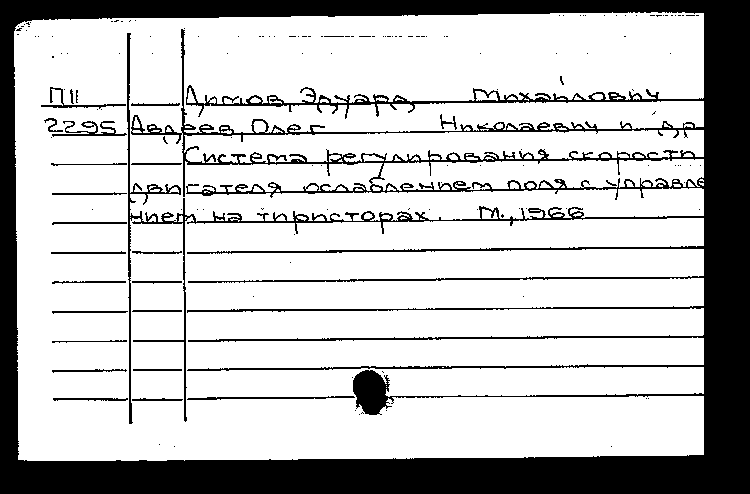 П11 Димов, Эдуард Михайлович
2295 Авдеев, Олег Николаевич и др
Система регулирования скорости
двигателя ослаблением поля с управле
нием на тиристорах. М., 1966